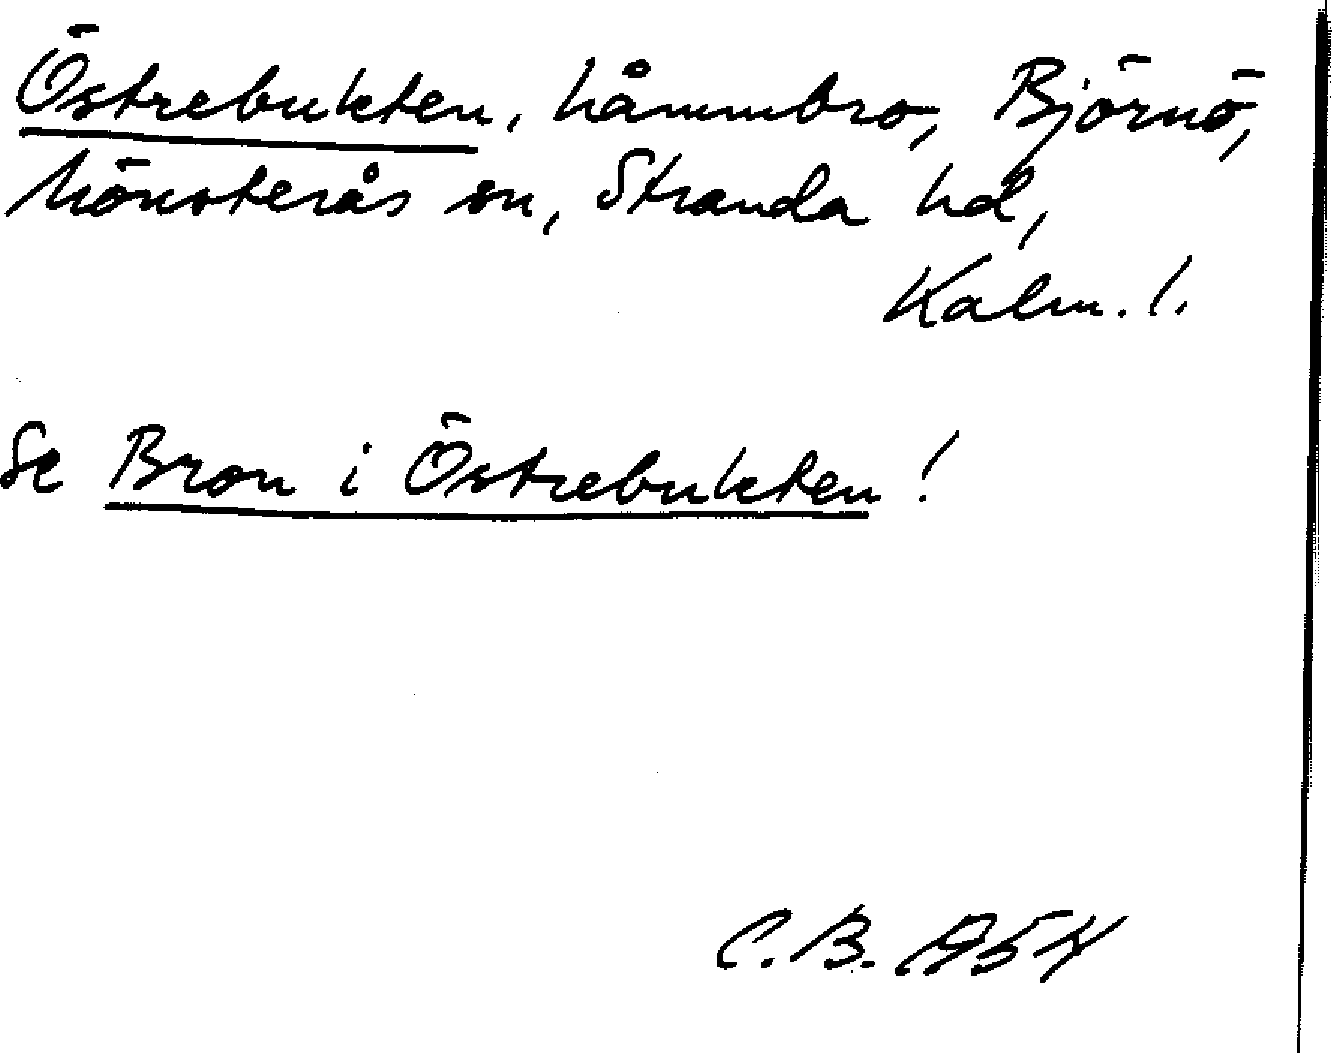 Östrebukten, håmmbro, Björnö,
Mönsterås sn, Stranda hd,
Kalm. l.
Se Bron i Östrebukten!
C.B. 1954